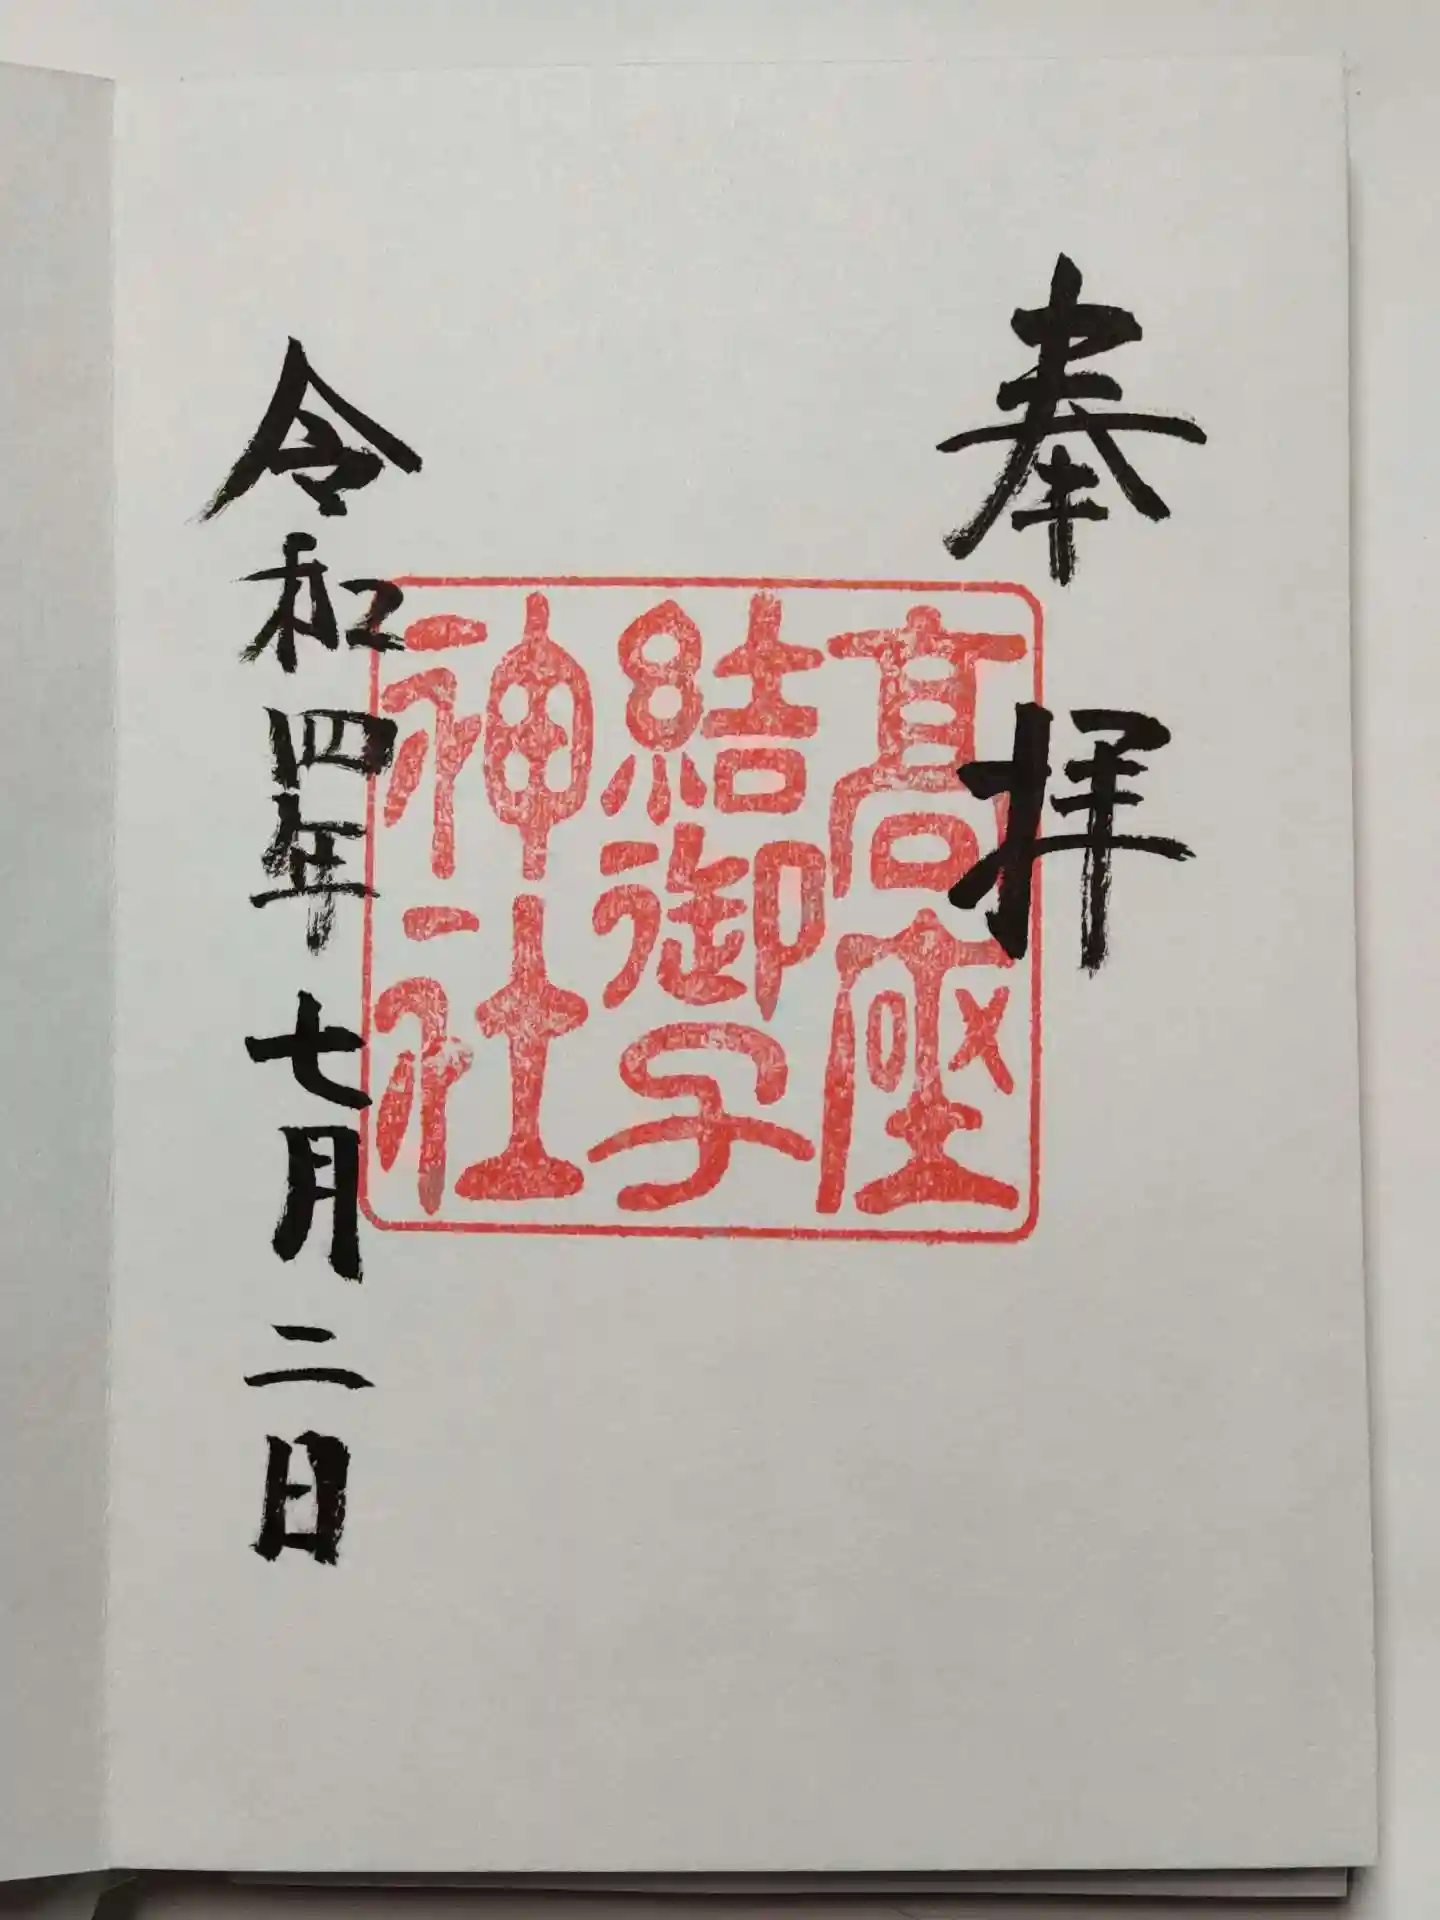 奉拝
高座
結御子
神社
令和四年七月二日